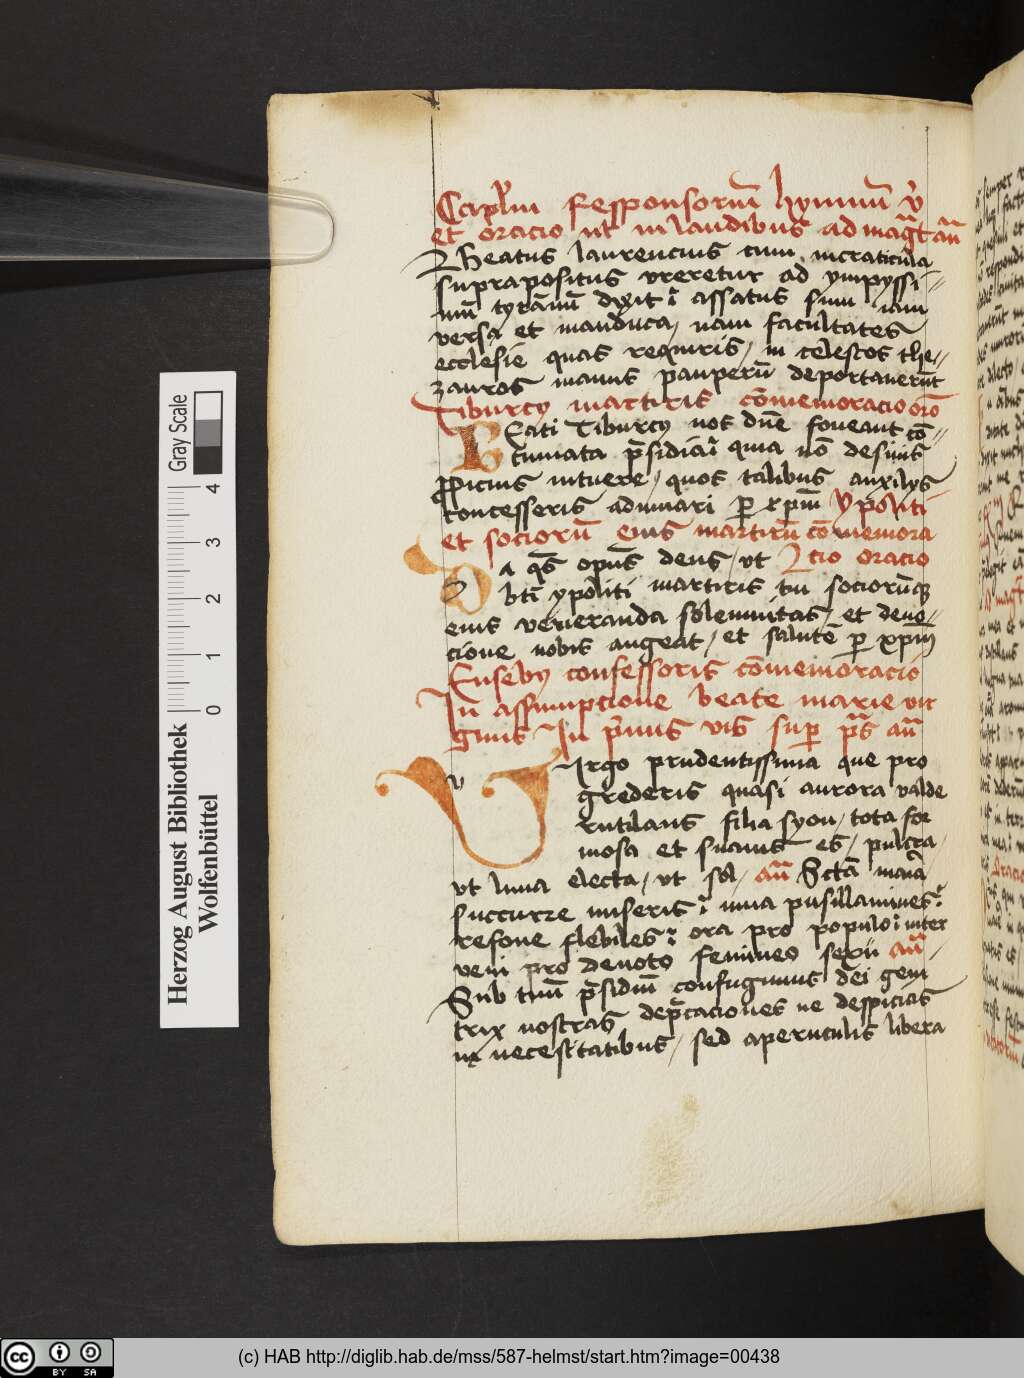 Capl'm Responsorium hymnum v̉
et oracio ut in laudibus ad mag̃t an̄
Beatus laurencius cum incraticula
suprapositus vreretur ad ympyssi⸗
mũ tyrãnũ dixit : assatus sum iam
versa et manduca / nam facultates
ecclesie quas requiris / in celestos the⸗
zauros manus pauperũ deportauerũt
Tiburcy martiris cõmemoracio oĩo
Beati Tiburcy nos dñe foueant cõ⸗
tinuata p̃sidia : quia nõ desinis
ꝓpicius intuere / quos talibus auxilys
concesseris adiuuari ꝑ xpm̃ Ypoliti
et sociorũ eius martirũ cõmemora
cio oracio
Da q̃s om̃ps deus / vt
bt̃i ypoliti martiris tui sociorũq3
eius veneranda solemnitas / et deuo⸗
cione nobis augeat / et salutẽ ꝑ xpm̃
Eusebÿ confessoris cõmemoracio
In assumpcione beate marie vir
ginis In p̃imis vis̃ suꝑ p̃s an̄
Virgo prudentissima que pro
grederis quasi aurora valde
rutilans filia syon / tota for
mosa et suauis es / pulcra
vt luna electa / vt sol / an̄ Sctã maiã
succurre miseris : iuua pusillanimes :
refoue flebiles : ora pro populo : inter
veni pro deuoto femineo sexu an̄
Sub tuũ p̃sidiũ confugimus dei geni
trix nostras dep̃caciones ne despicias
in necessitatibus / sed a periculis libera
Herzog August Bibliothek
Wolfenbüttel
Gray Scale
0 1 2 3 4
(c) HAB http://diglib.hab.de/mss/587-helmst/start.htm?image=00438
cc BY SA